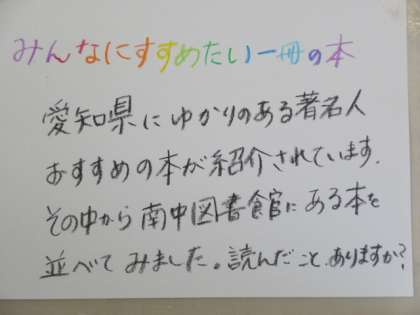 みんなにすすめたい一冊の本
愛知県にゆかりのある著名人
おすすめの本が紹介されています.
その中から南中図書館にある本を
並べてみました。読んだこと、ありますか?